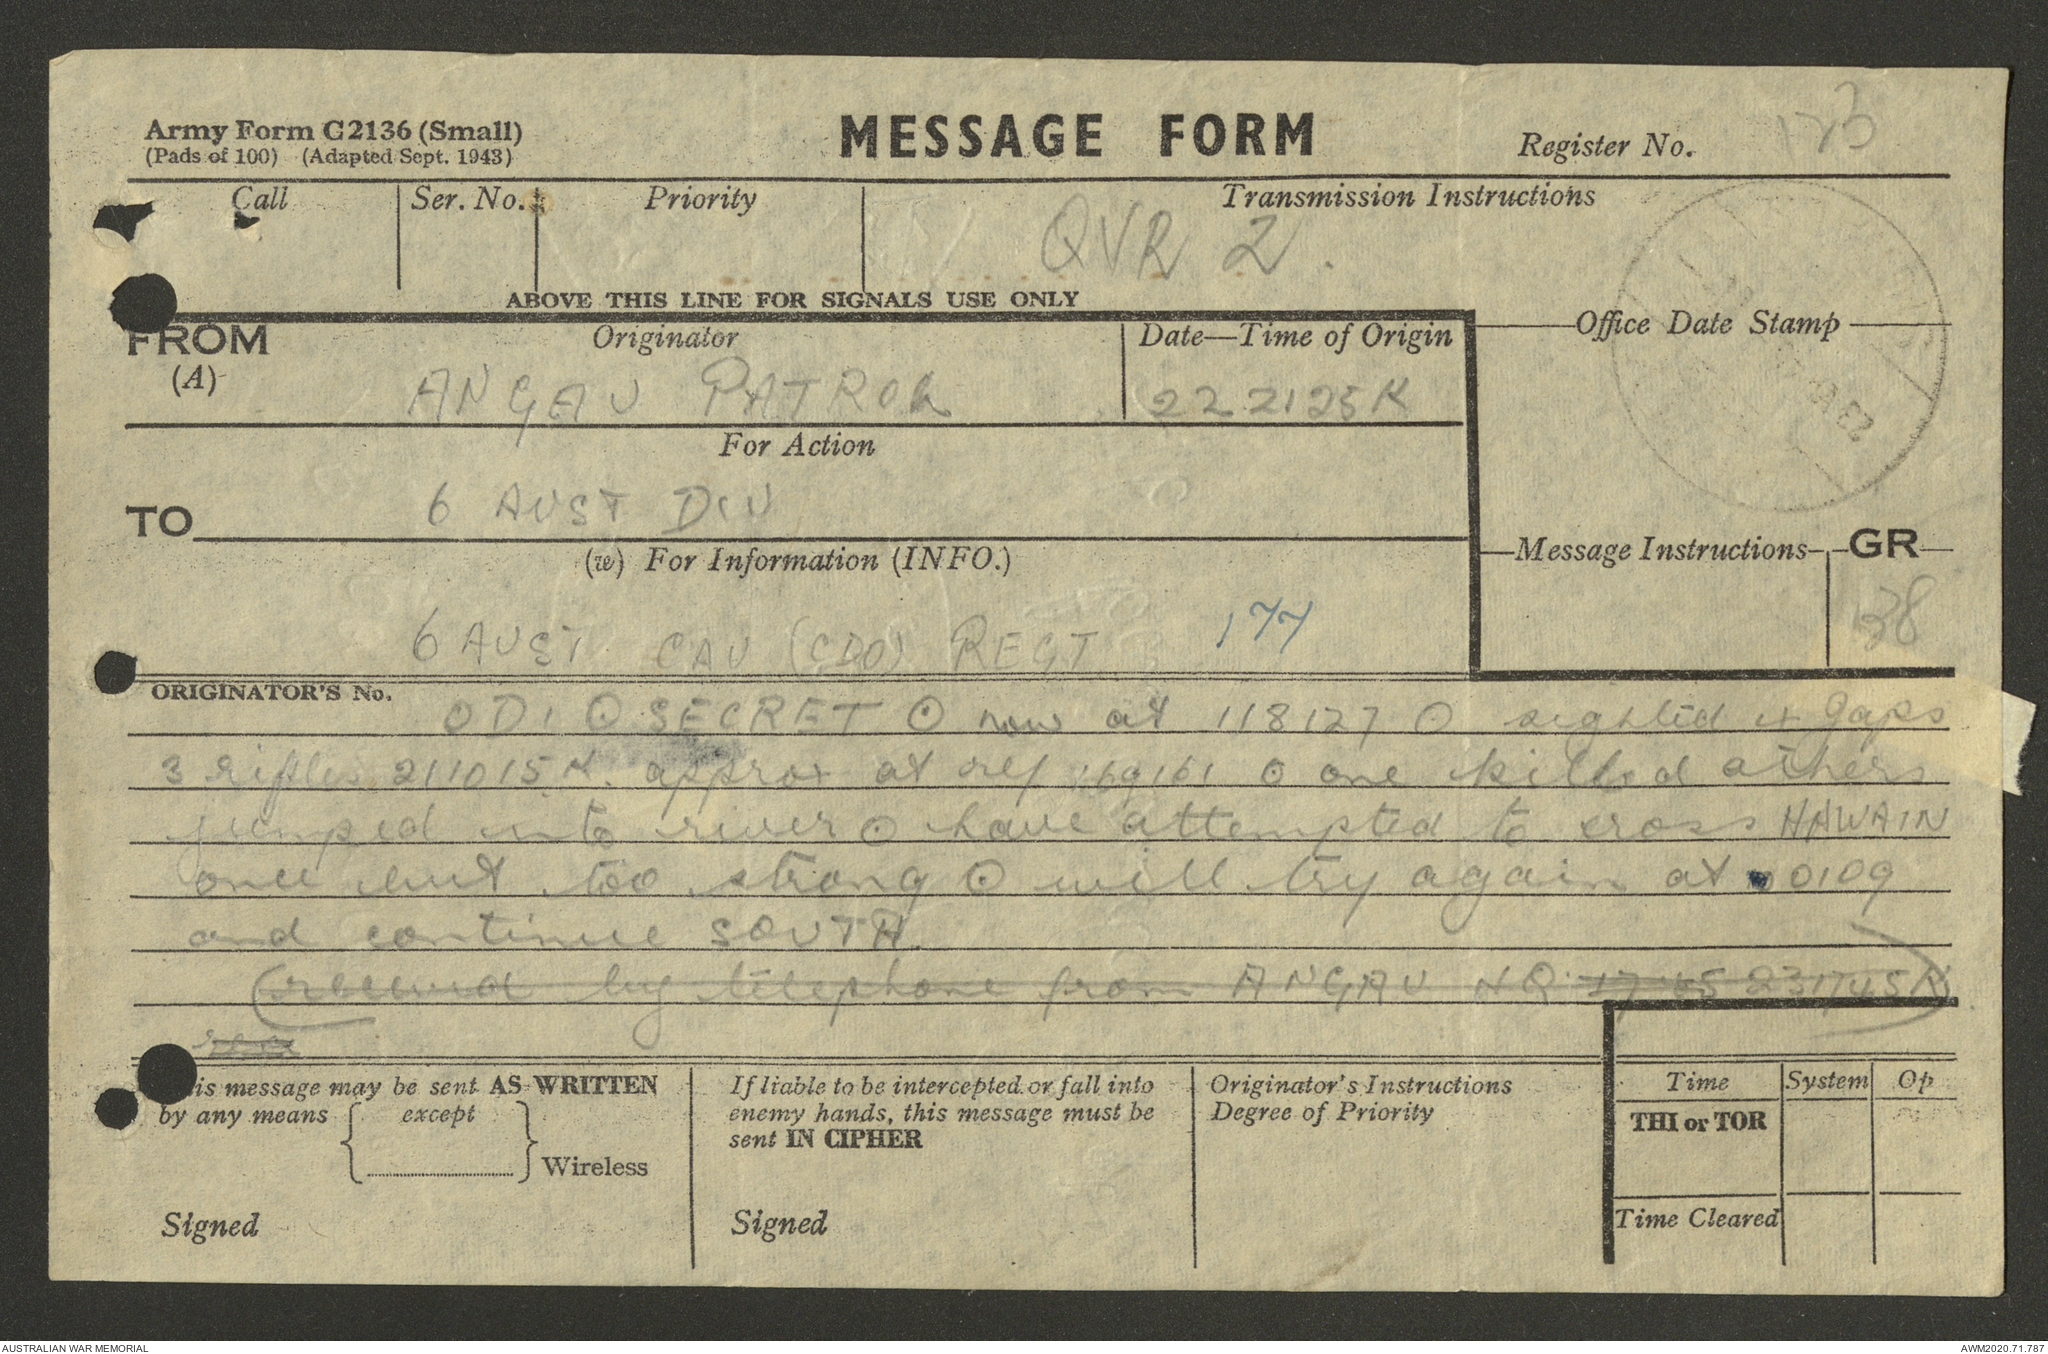 Army Form C2136 (Small)
(Pads of 100) (Adapted Sept. 1943)
MESSAGE FORM
Register No. 173
Call
Ser. No.
Priority
Transmission Instructions
QVR 2.
ABOVE THIS LINE FOR SIGNALS USE ONLY
FROM
(A)
Originator
ANGAU PATROL
Date—Time of Origin
222125K
Office Date Stamp
For Action
TO
6 AUST DIV
(w) For Information (INFO.)
6 AUST CAV (CDO) REGT 177
Message Instructions
GR
138
ORIGINATOR'S No.
OD1 O SECRET O now at 118127 O sighted 4 Japs
3 rifles 211015K approx at ref 169161 O one killed others
jumped into river O have attempted to cross HAWAIN
once but too strong O will try again at 0109
and continue SOUTH.
(received by telephone from ANGAU HQ 1745 231745K)
This message may be sent AS WRITTEN
by any means except
Wireless
Signed
If liable to be intercepted or fall into
enemy hands, this message must be
sent IN CIPHER
Signed
Originator's Instructions
Degree of Priority
Time
System
Op
THI or TOR
Time Cleared
AUSTRALIAN WAR MEMORIAL
AWM2020.71.787